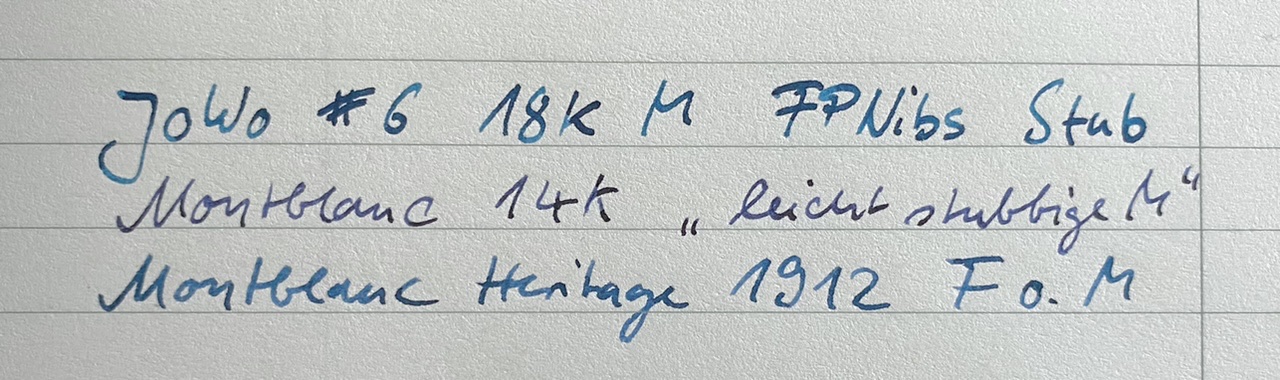 JoWo #6 18K M FPNibs Stub
Montblanc 14K „leicht stubbige M“
Montblanc Heritage 1912 F o. M